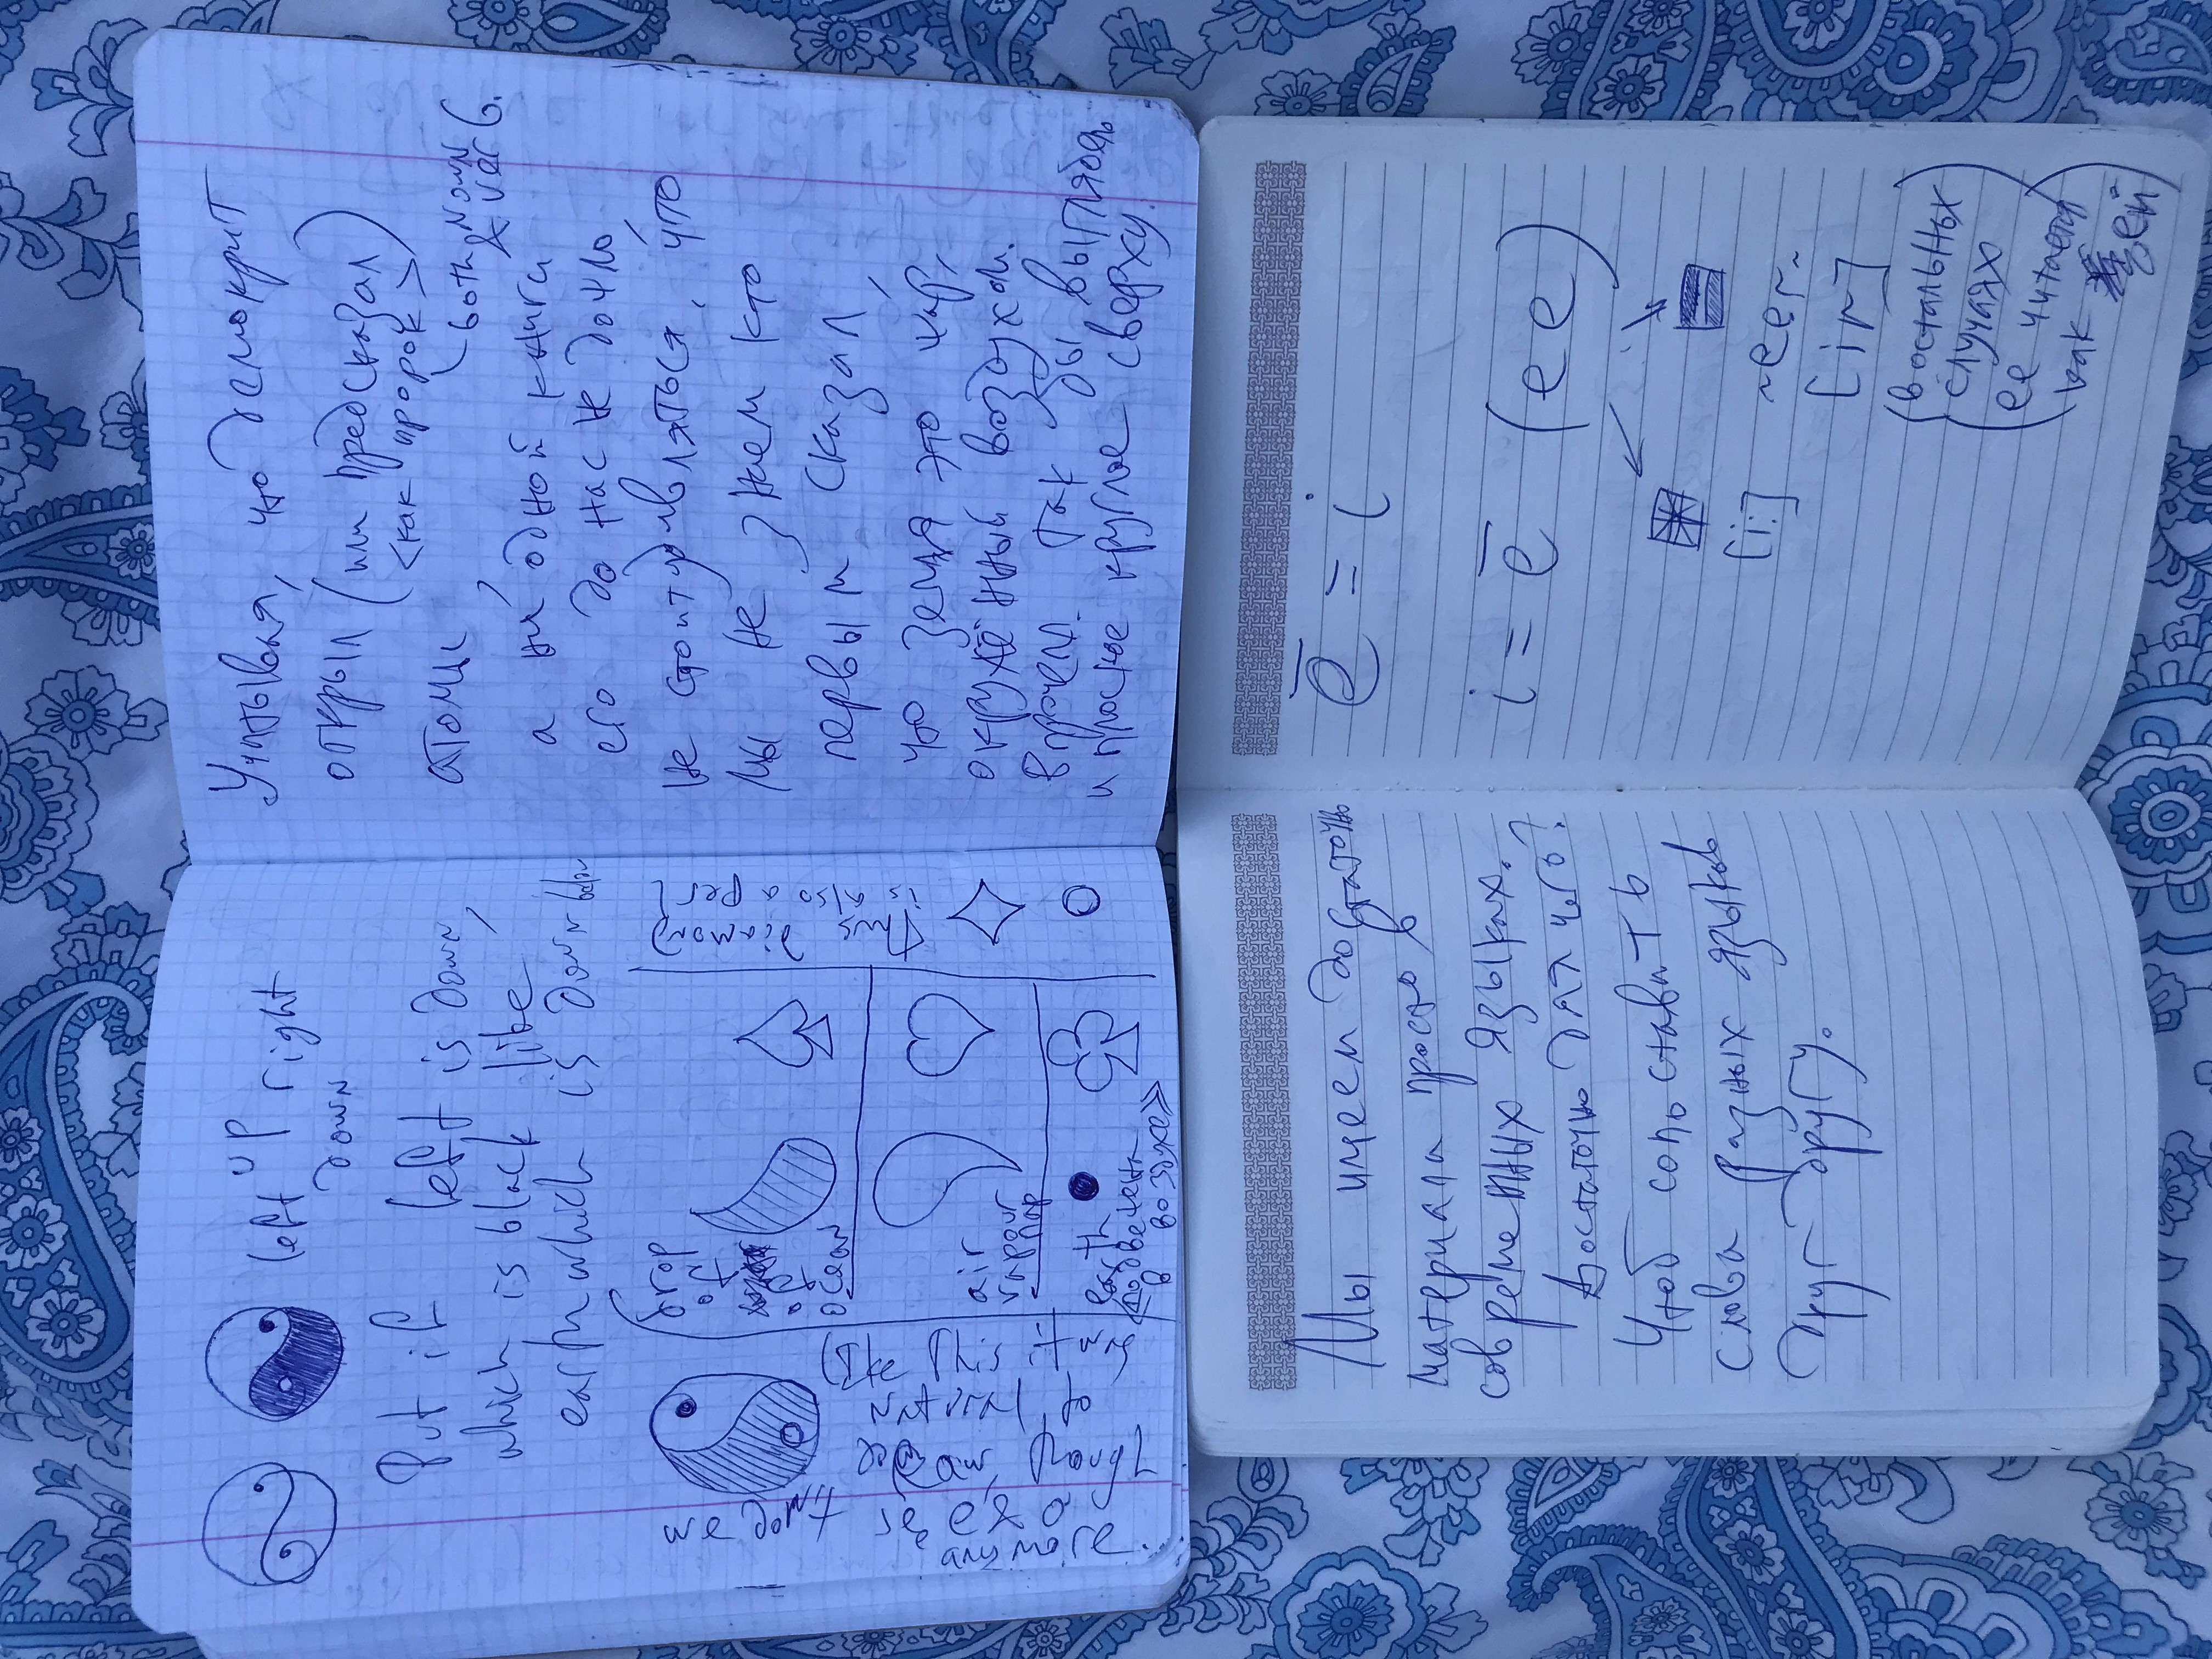 up
left right
down
But if left is down,
which is black like
earth which is down below
drop
of
ocean
air
vapour
пар
earth
подвешена
в воздухе»
Thus diamond
is also a perl
like this it was
natural to
draw, though
we don't see e & o
anymore.
Учитывая, что демокрит
открыл (или предсказал)
<как пророк>
атомы,
both noun
& verb.
а ни одной книги
его до нас не дошло,
не стоит удивляться, что
мы не знаем кто
первым сказал,
что земля это шар,
окружённый воздухом.
впрочем. так бы выглядело
и плоское круглое сверху.
Мы имеем достаточно
материала просто в
современных языках.
Достаточно для чего?
Чтоб сопоставить
слова разных языков
друг другу.
ē = i
i = ē (ee)
[i:] ~eer~
[ir]
(в остальных
случаях
ee читается
как ей)